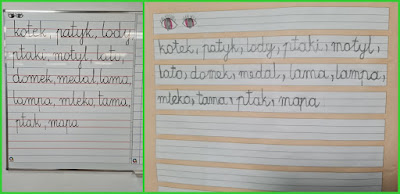 kotek, patyk, lody
ptaki, motyl, lato,
domek, medal, lama,
lampa, mleko, tama,
ptak, mapa
kotek, patyk, lody, ptaki, motyl,
lato, domek, medal, lama, lampa,
mleko, tama, ptak, mapa